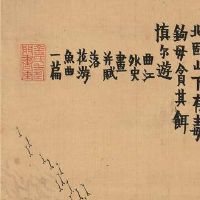 北固山下有
鈎毋貪其餌
慎尔遊
曲江
外史
畫
并賦
落
花游
魚曲
一篇